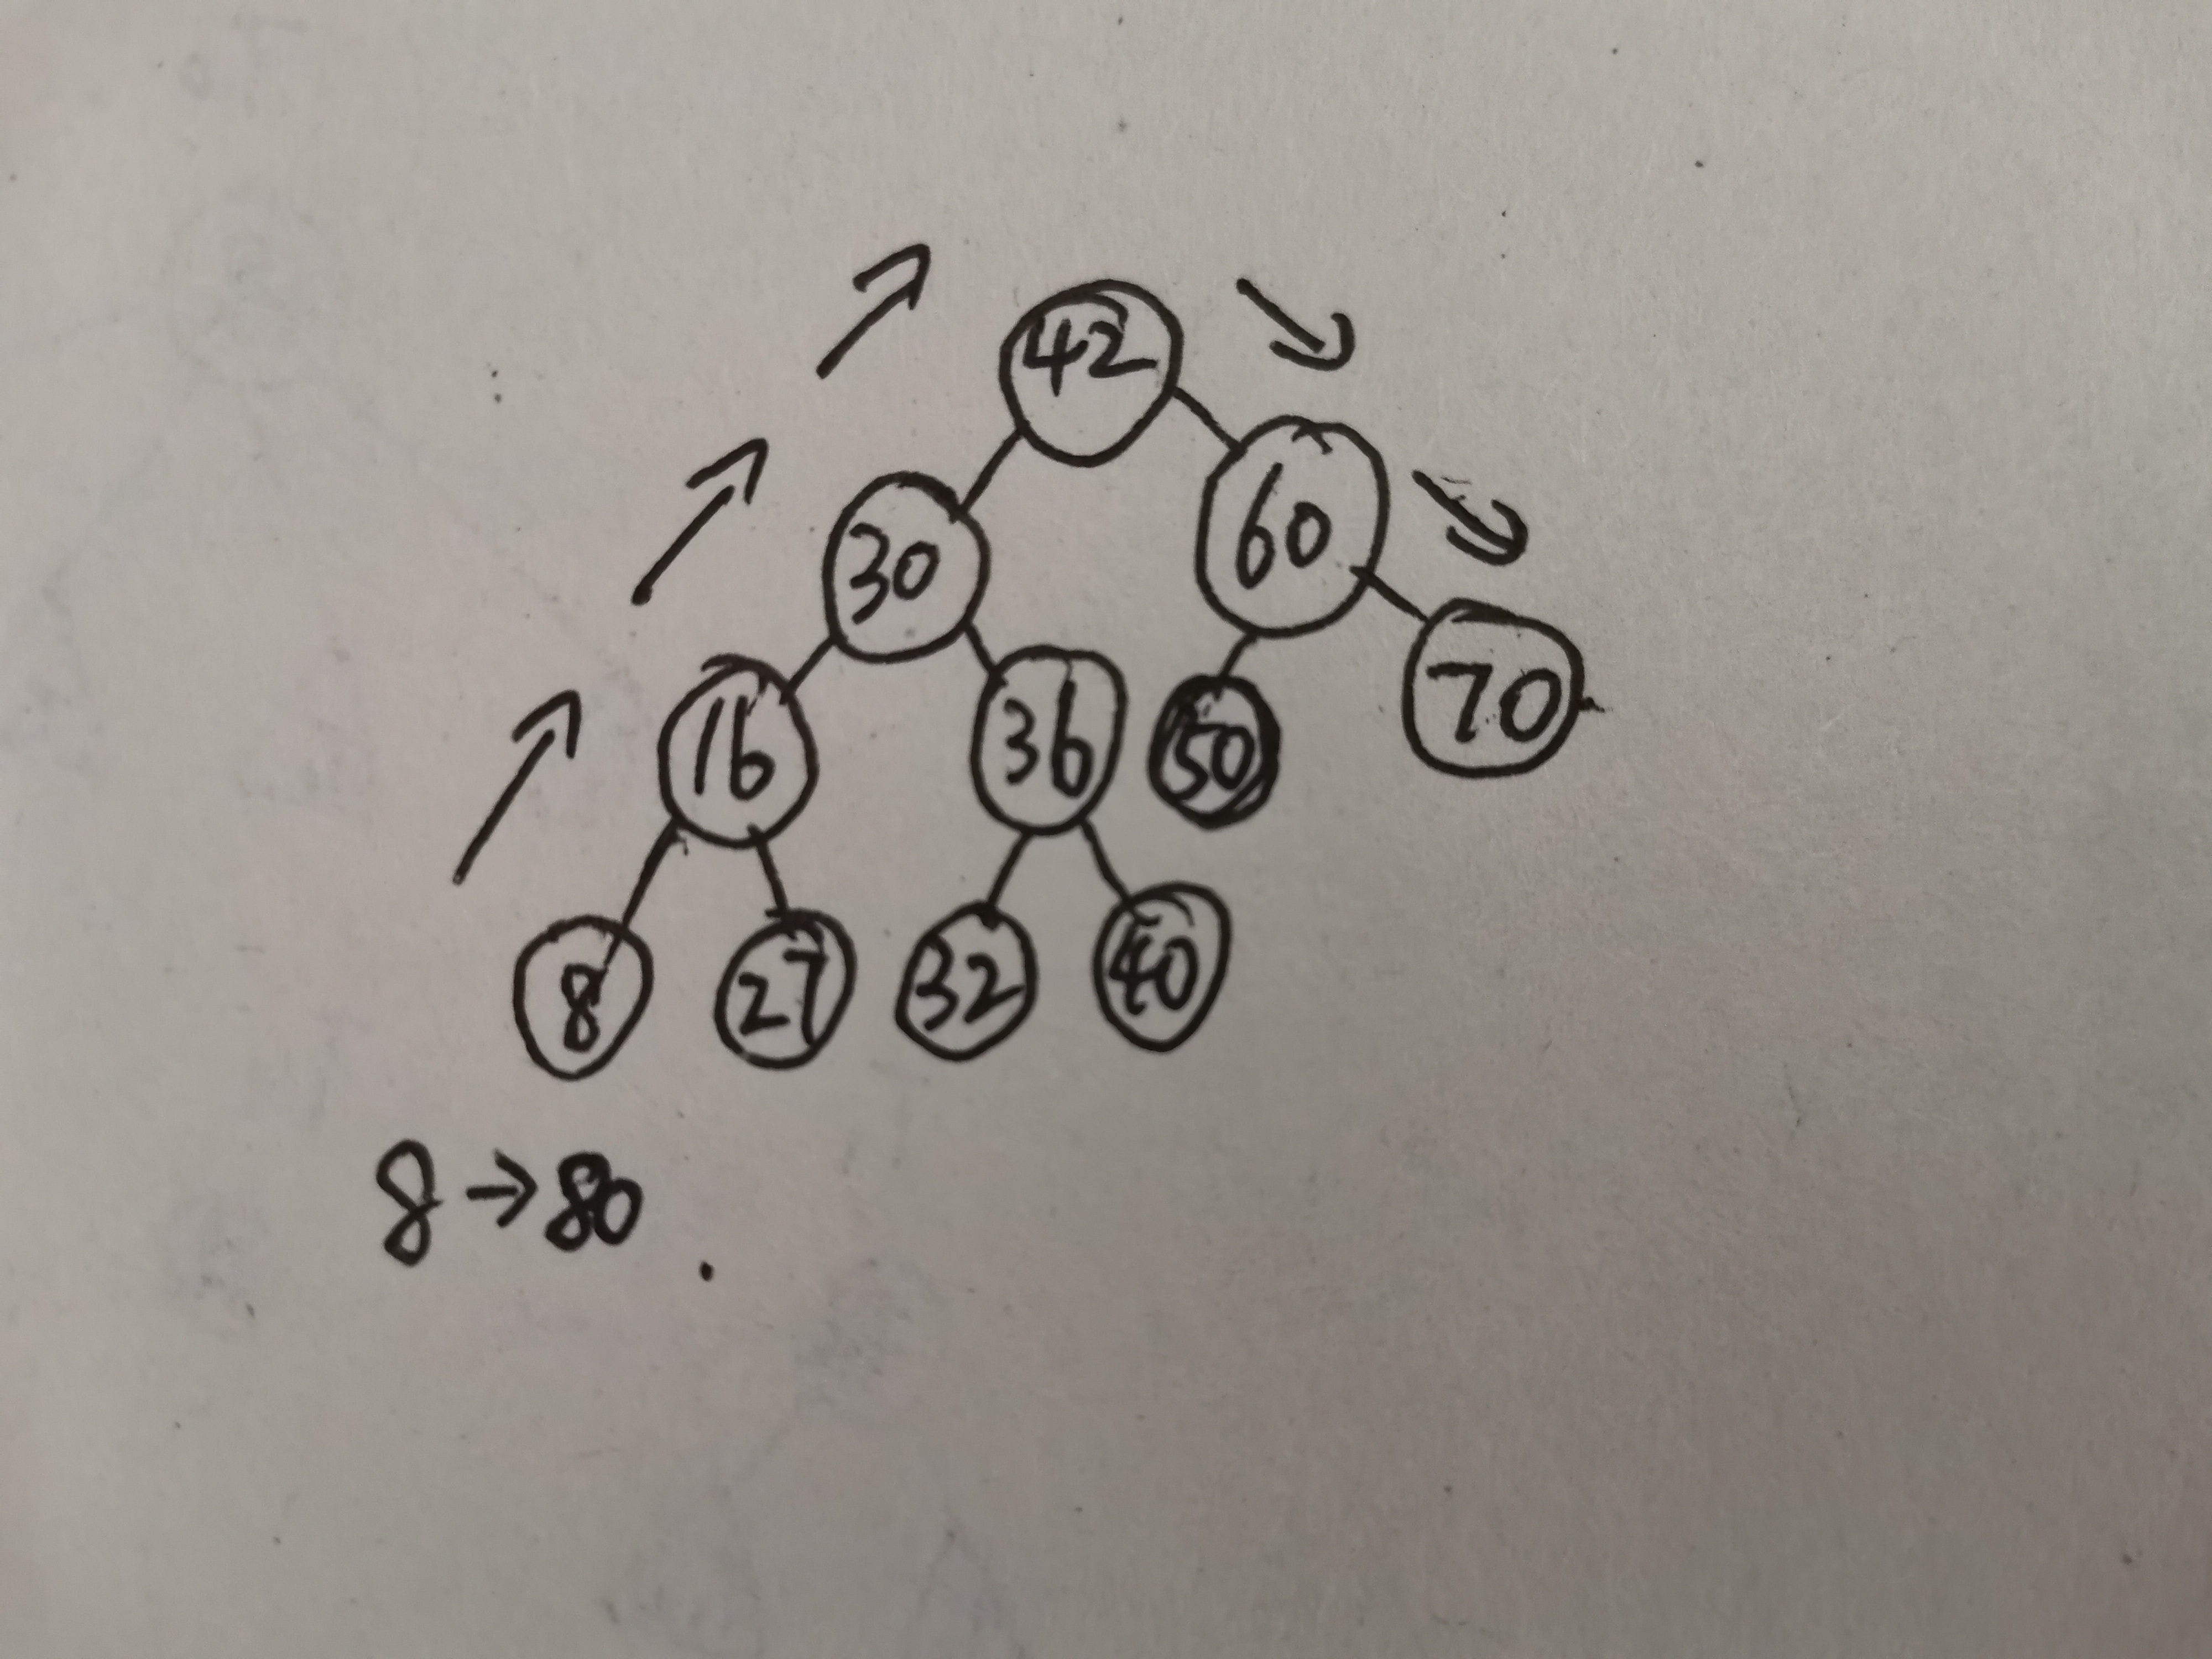 42
30 60
16 36 50 70
8 27 32 40
8→80